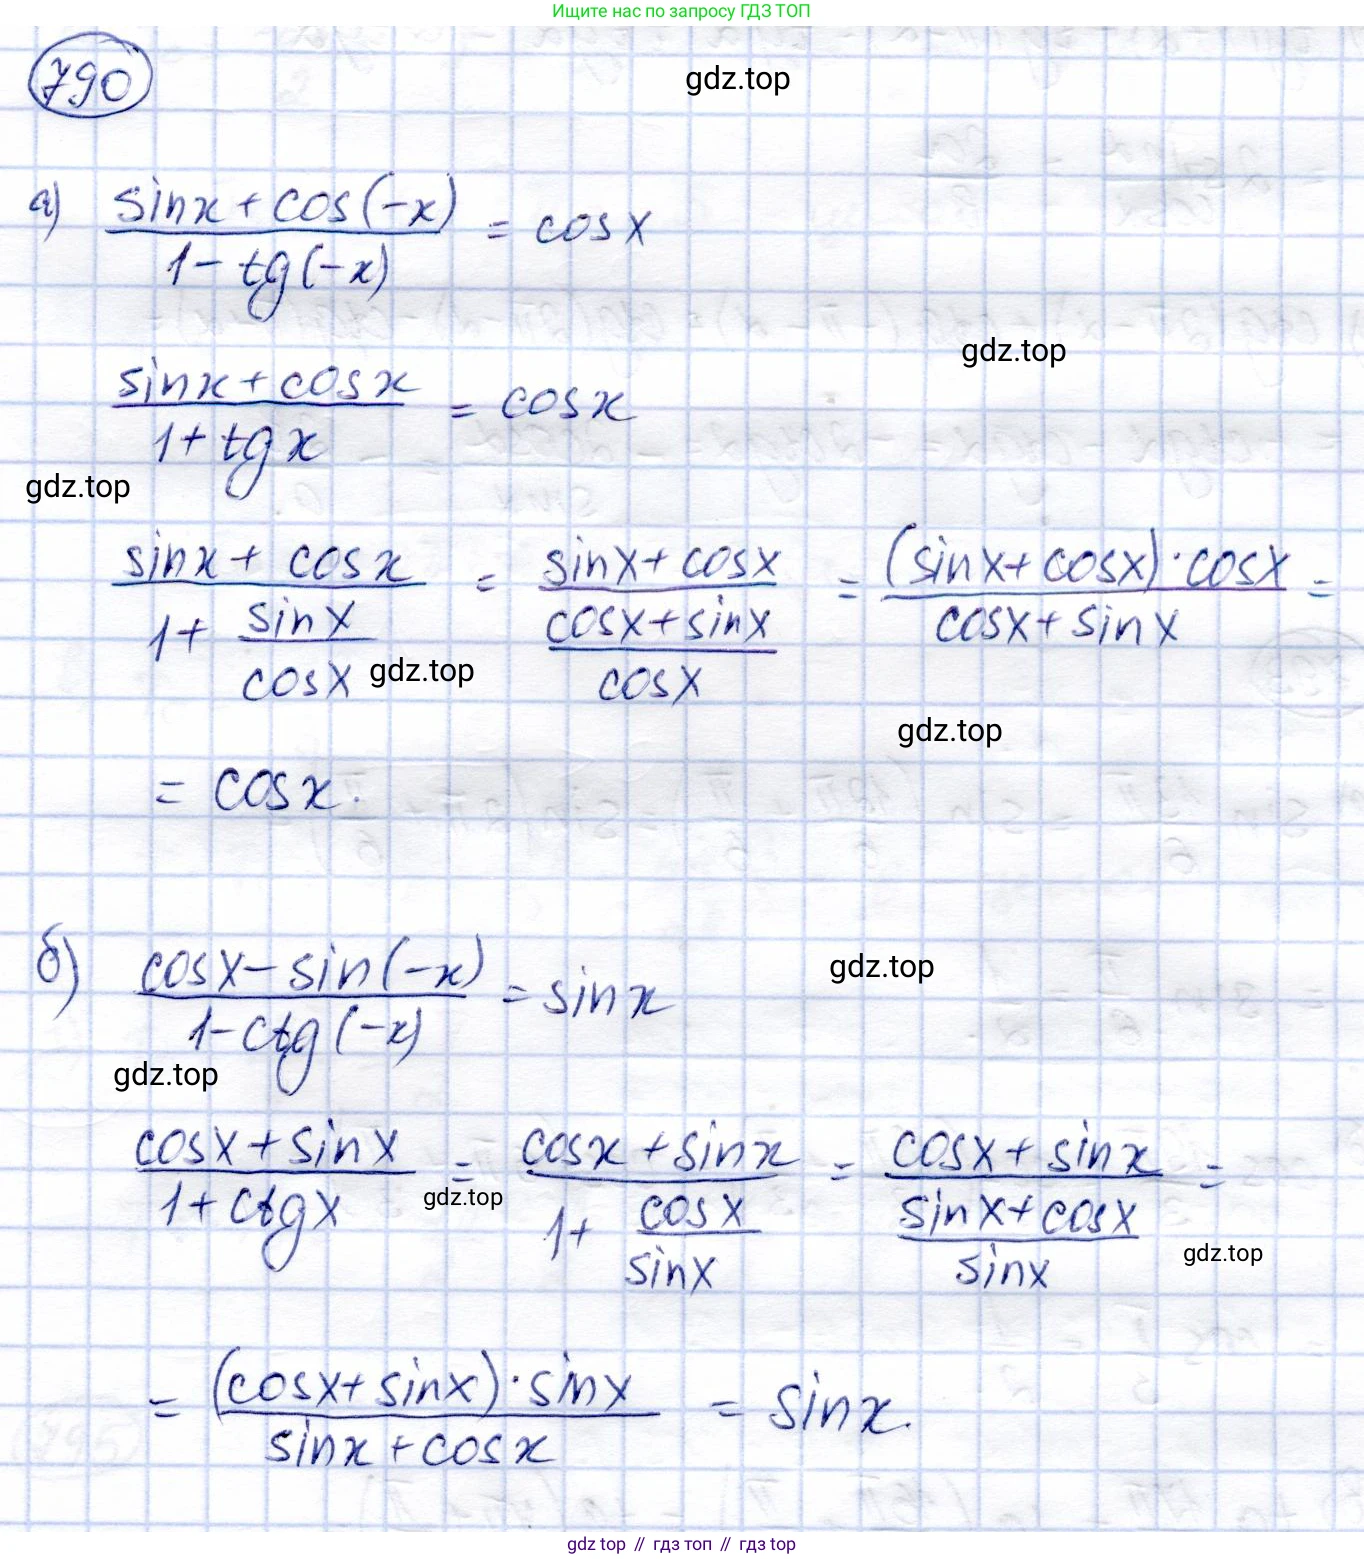 Ищите нас по запросу ГДЗ ТОП
790
gdz.top
а) (sinx + cos(-x)) / (1 - tg(-x)) = cosx
gdz.top
(sinx + cosx) / (1 + tgx) = cosx
gdz.top
(sinx + cosx) / (1 + sinx/cosx) = (sinx + cosx) / ((cosx + sinx)/cosx) = ((sinx + cosx) · cosx) / (cosx + sinx) =
gdz.top
gdz.top
= cosx.
б) (cosx - sin(-x)) / (1 - ctg(-x)) = sinx
gdz.top
gdz.top
(cosx + sinx) / (1 + ctgx) = (cosx + sinx) / (1 + cosx/sinx) = (cosx + sinx) / ((sinx + cosx)/sinx) =
gdz.top
gdz.top
= ((cosx + sinx) · sinx) / (sinx + cosx) = sinx.
gdz top // гдз топ // гдз top